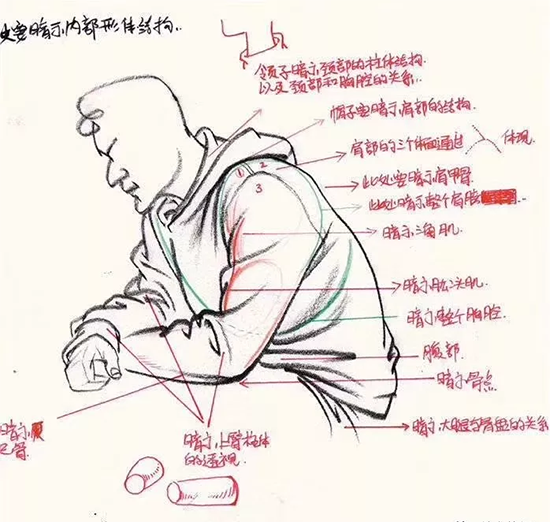 要暗示内部形体结构.
领子暗示颈部的柱体结构.
以及颈部和胸腔的关系.
帽子要暗示肩部的结构.
肩部的三个体面通过
体现.
1
2
3
此处要暗示肩胛骨
此处暗示整个肩膀
暗示三角肌
暗示肱二头肌
暗示整个胸腔.
腹部
暗示骨点
暗示大腿与骨盆的关系
暗示上臂柱体
的透视.
暗示
骨.